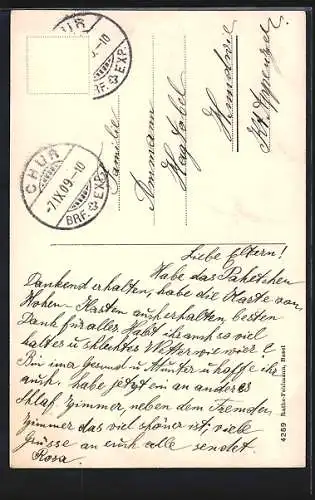 CHUR
-7.IX.09.-10
BRF. EXP.
CHUR
09.-10
BRF. EXP.
Familie
Ammann
Hagtobel
Kt. Appenzell
Liebe Eltern!
Habe das Paketchen
Dankend erhalten, habe die Karte von
Hohen-Kasten auch erhalten besten
Dank für alles. Habt ihr auch so viel
kaltes u schlechtes Wetter wie wir?
Bin imer Gesund u Munter u hoffe ihr
auch. habe jetzt ein anderes
Schlaf Zimmer, neben dem Fremden
Zimmer das viel schöner ist, viele
Grüsse an euch alle sendet
Rosa
4289 Rathe-Fehlmann, Basel